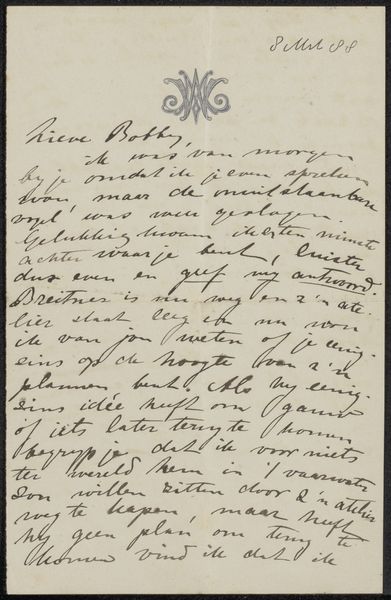 8 Mrt 88
Lieve Bobby,
ik was van morgen
bij je omdat ik je even spreken
wou, maar de onuitstaanbare
vogel was weer gevlogen.
Gelukkig kwam ik ten minste
achter waar je bent, luister
dus even en geef my antwoord.
Breitner is nu weg en z'n ate-
lier staat leeg en nu wou
ik van jou weten of je eenig-
sins op de hoogte van z'n
plannen bent. Als hy eenig-
sins idée heeft om gauw
of iets later terug te komen
begryp je dat ik voor niets
ter wereld hem in 't vaarwater
zou willen zitten door z'n atelier
weg te kapen, maar heeft
hy geen plan om terug te
komen vind ik dat ik